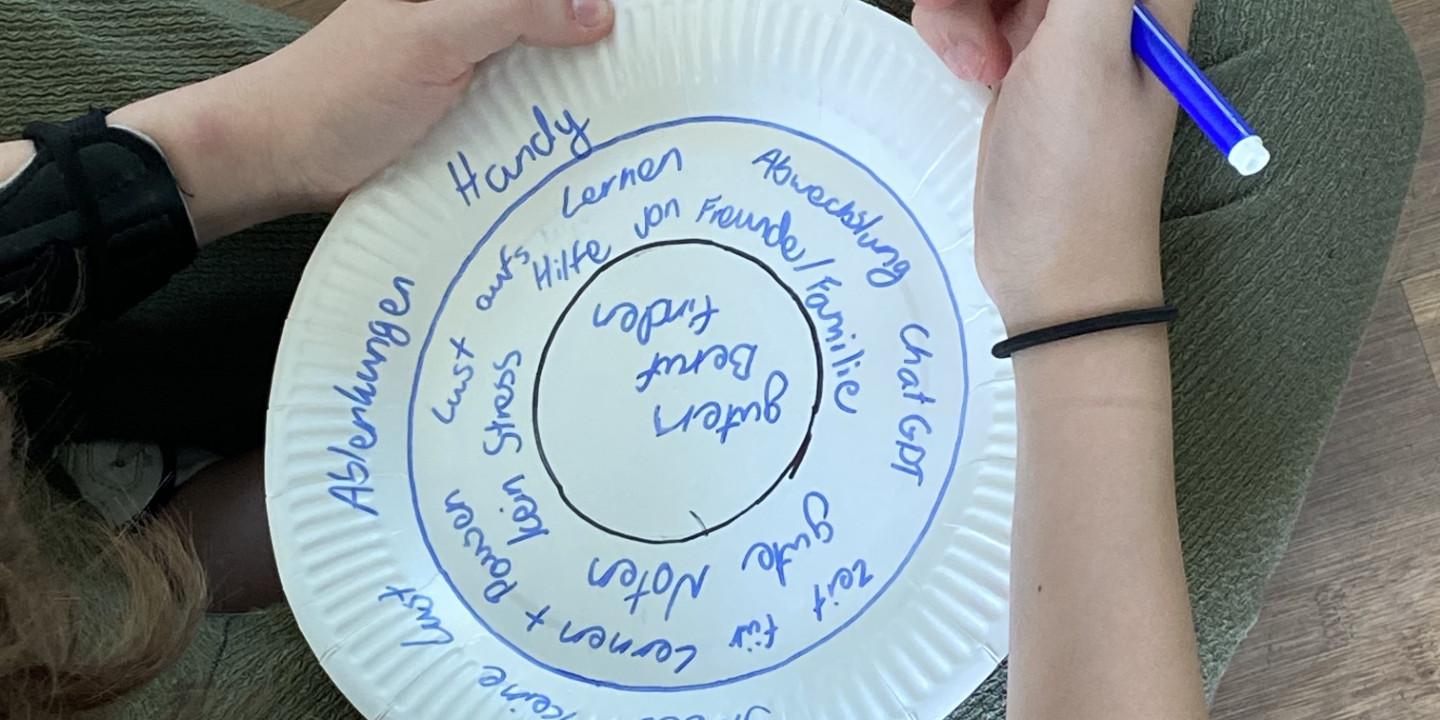 guten
Beruf
finden
Hilfe von Freunde/Familie
Gute Noten
kein Stress
Lust aufs Lernen
Abwechslung
ChatGPT
Zeit für Lernen + Pausen
Handy
Ablenkungen
keine Lust